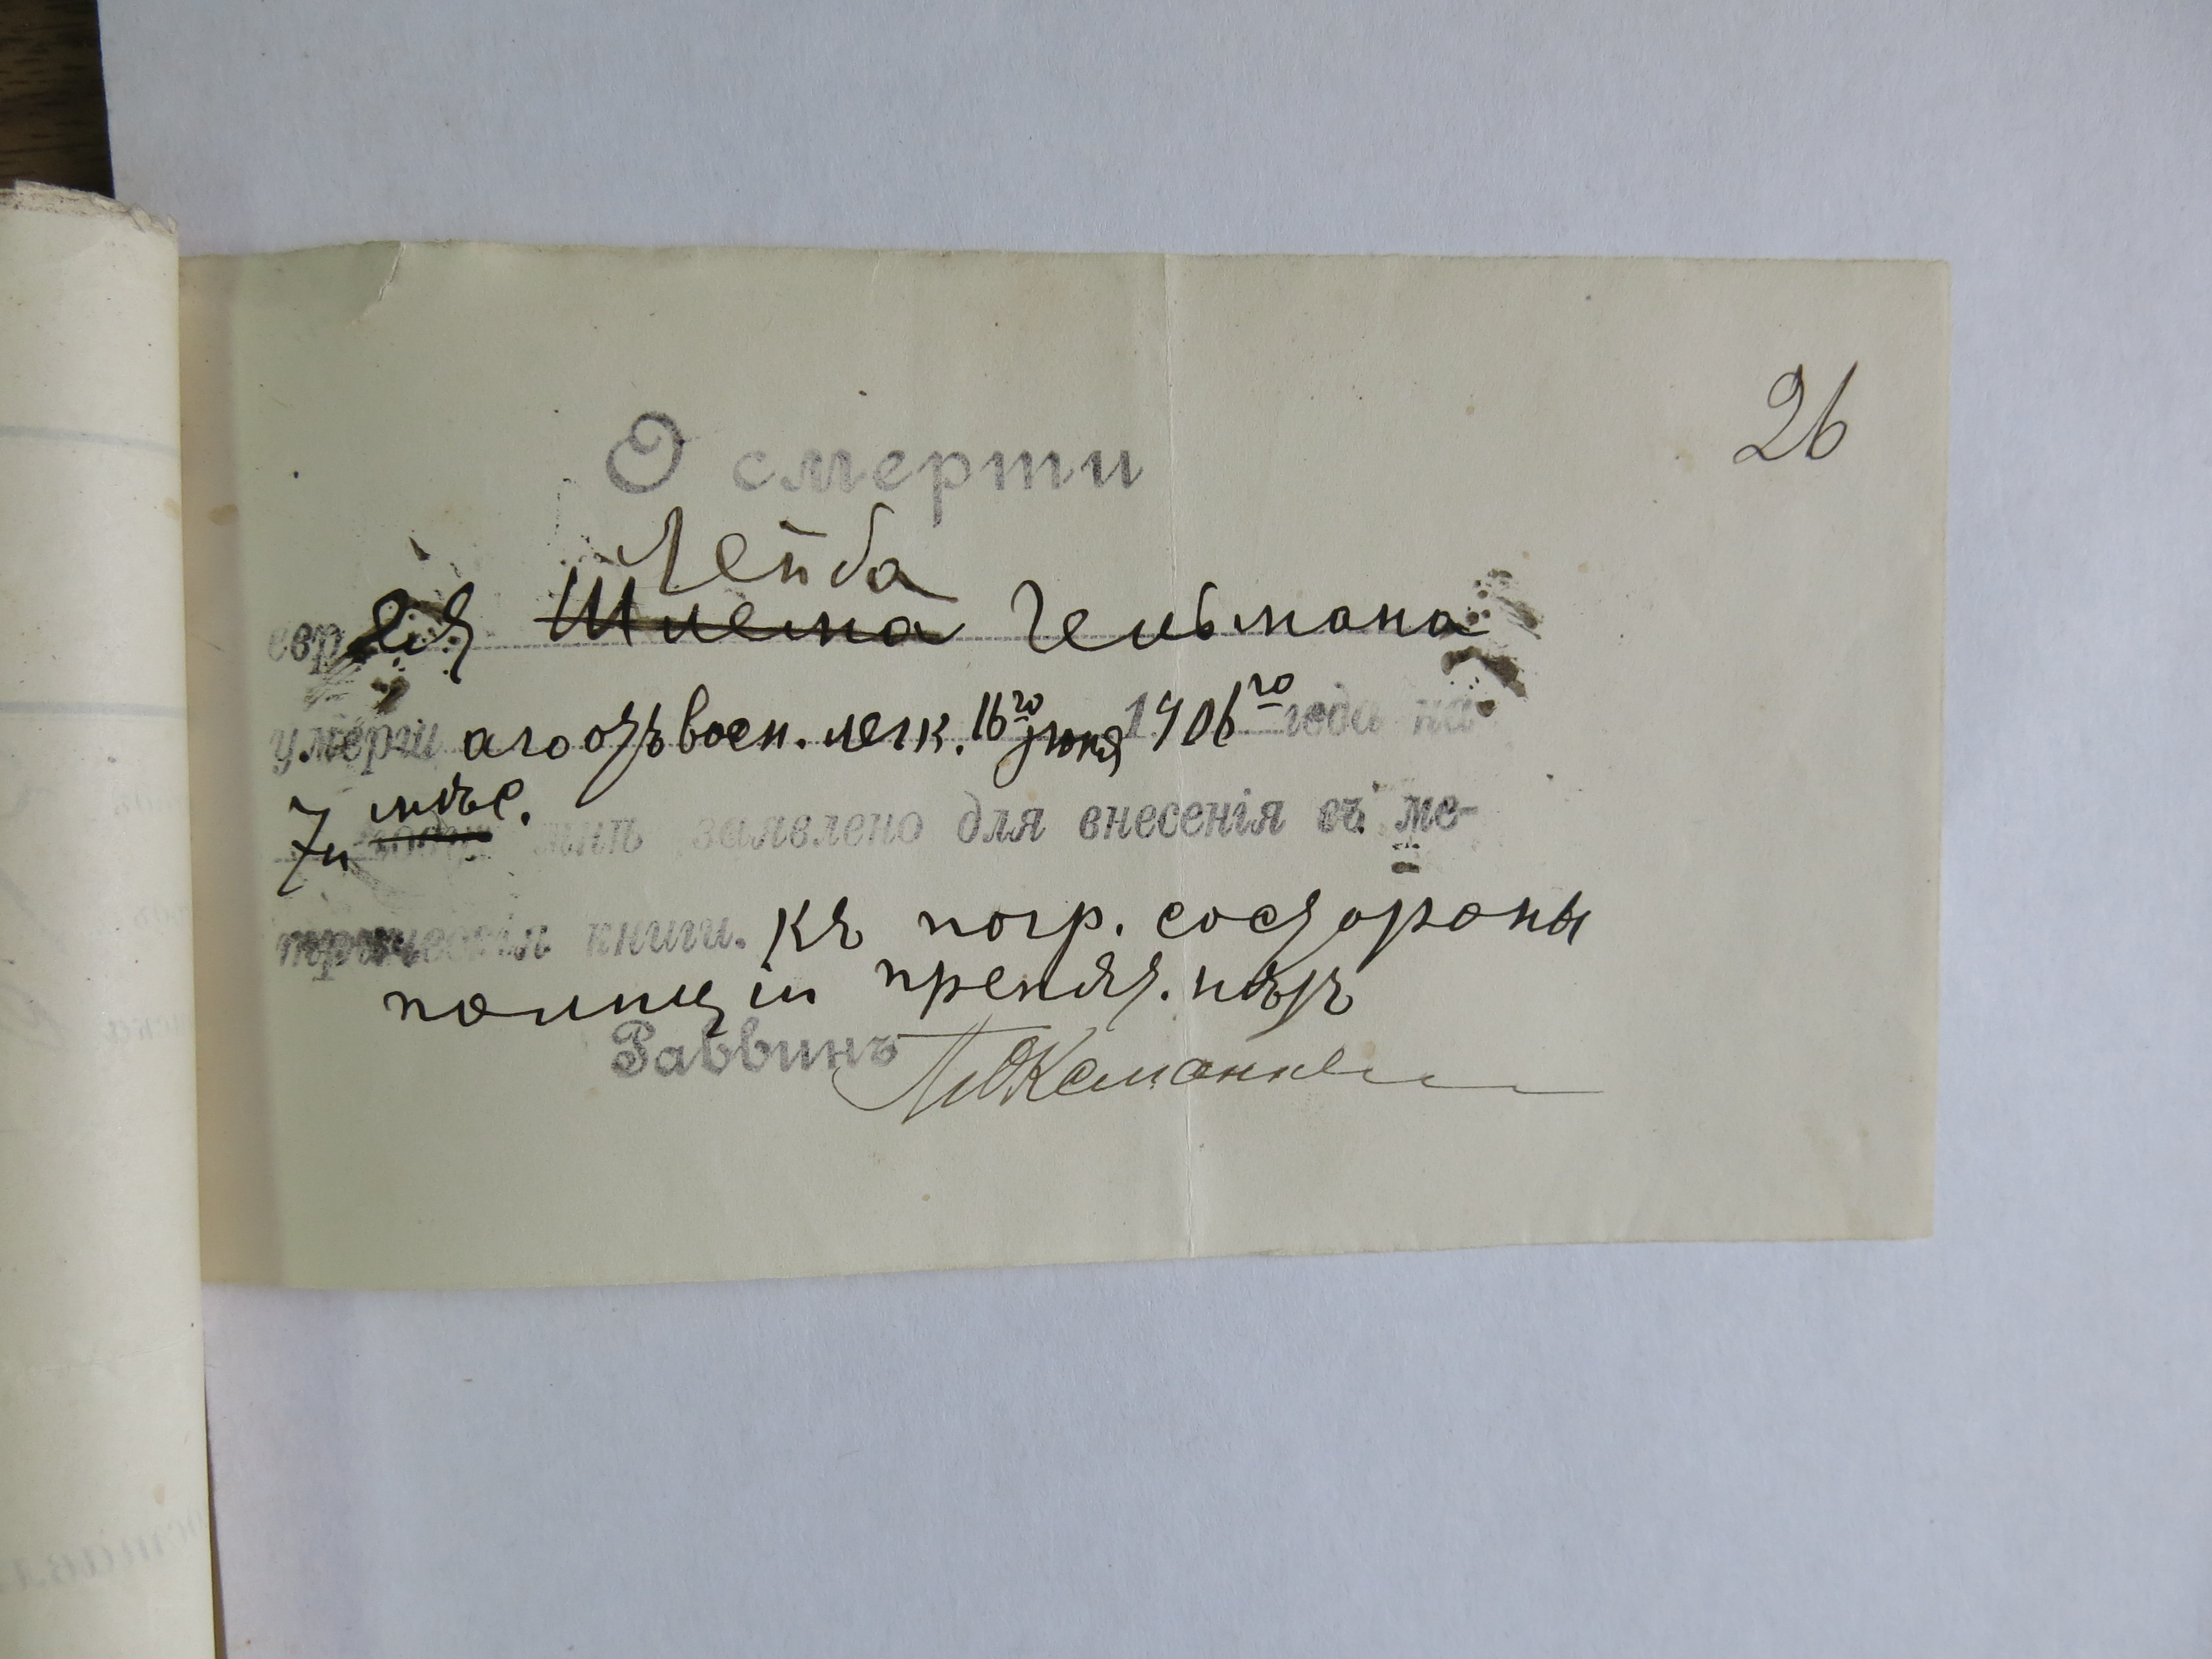 26
О смерти
Лейба
еврея Шлема Гельмана
умерш аго отъ восп. легк. 16го Іюня 1906го года на
мѣс.
7и года мнѣ заявлено для внесенія въ ме-
трическія книги. къ погр. со стороны
полиціи препят. нѣтъ
Раввинъ